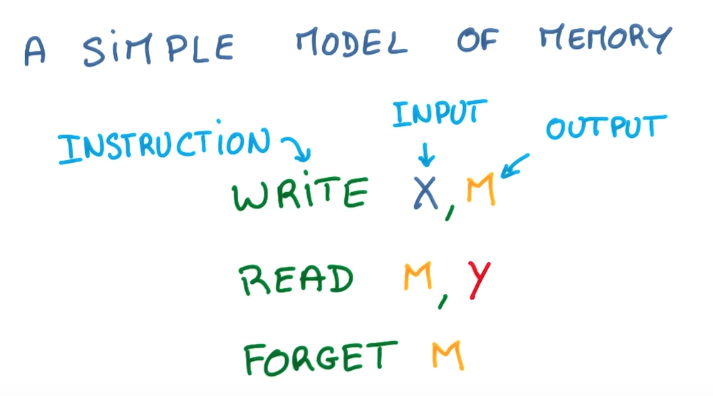 A SIMPLE MODEL OF MEMORY
INPUT
OUTPUT
INSTRUCTION
WRITE X, M
READ M, Y
FORGET M